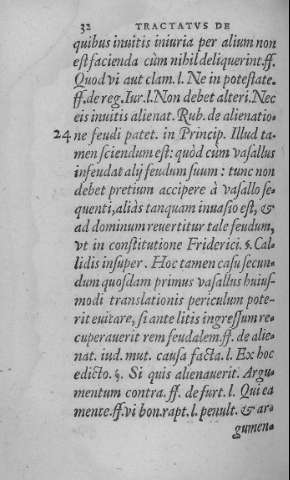 32 TRACTATVS DE
quibus inuitis iniuria per alium non
est facienda cùm nihil deliquerint. ff.
Quod vi aut clam. l. Ne in potestate.
ff. de reg. Iur. l. Non debet alteri. Nec
eis inuitis alienat. Rub. de alienatio-
24 ne feudi patet. in Princip. Illud ta-
men sciendum est: quòd cum vasallus
infeudat alij feudum suum: tunc non
debet pretium accipere à vasallo se-
quenti, aliàs tanquam inuasio est, &
ad dominum reuertitur tale feudum,
vt in constitutione Friderici. §. Cal-
lidis insuper. Hoc tamen casu secun-
dum quosdam primus vasallus huius-
modi translationis periculum pote-
rit euitare, si ante litis ingressum re-
cuperauerit rem feudalem. ff. de alie-
nat. iud. mut. causa facta. l. Ex hoc
edicto. §. Si quis alienauerit. Argu-
mentum contra. ff. de furt. l. Qui ea
mente. ff. vi bon. rapt. l. penult. & ar-
gumen-